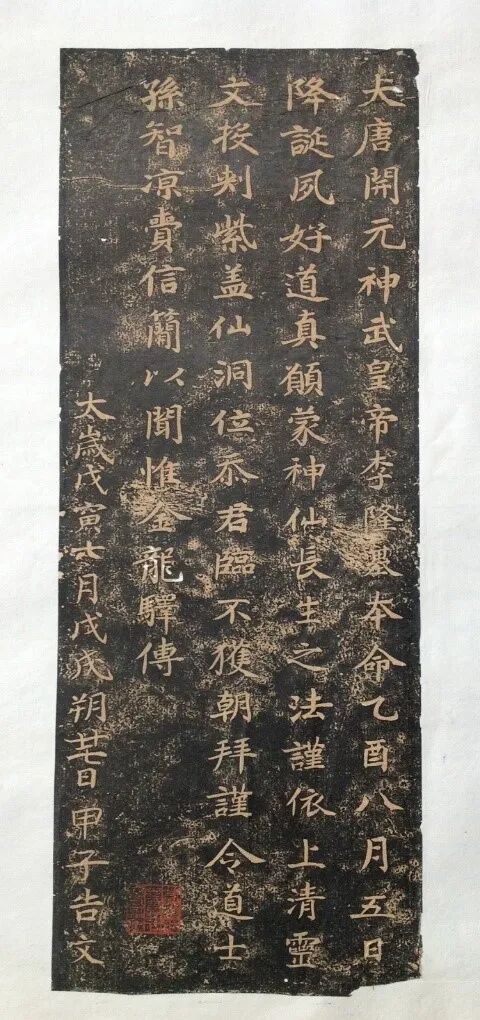 大唐開元神武皇帝李隆基本命乙酉八月五日
降誕夙好道真願蒙神仙長生之法謹依上清靈
文投刾紫盖仙洞位忝君臨不獲朝拜謹令道士
孫智凉賫信簡以聞惟金龍驛傳
太歲戊寅七月戊戌朔廿七日甲子告文